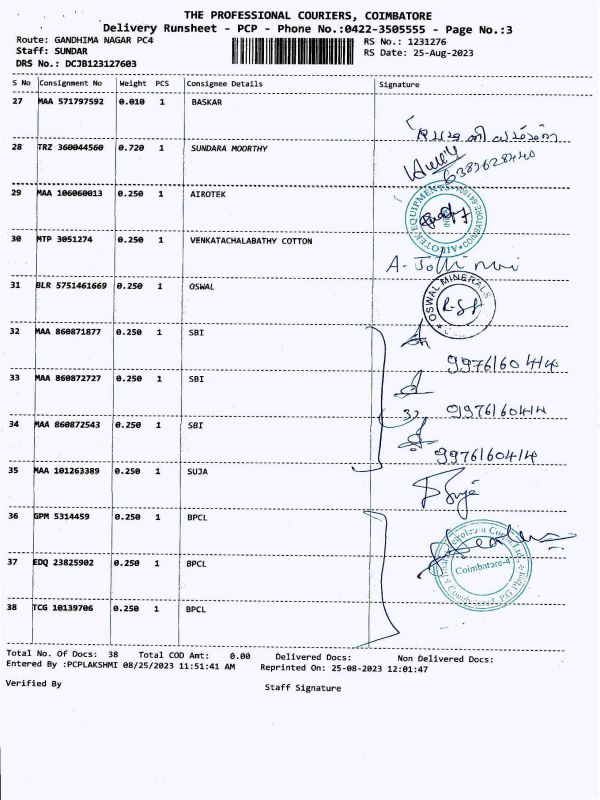 THE PROFESSIONAL COURIERS, COIMBATORE
Delivery Runsheet - PCP - Phone No.:0422-3505555 - Page No.:3
Route: GANDHIMA NAGAR PC4 RS No.: 1231276
Staff: SUNDAR RS Date: 25-Aug-2023
DRS No.: DCJB123127603
S No Consignment No Weight PCS Consignee Details Signature
27 MAA 571797592 0.010 1 BASKAR
28 TRZ 360044560 0.720 1 SUNDARA MOORTHY
6382628440
29 MAA 106060013 0.250 1 AIROTEK
AIROTEK EQUIPMENTS
30 MTP 3051274 0.250 1 VENKATACHALABATHY COTTON
31 BLR 5751461669 0.250 1 OSWAL
OSWAL MINERALS
32 MAA 860871877 0.250 1 SBI
9976160414
33 MAA 860872727 0.250 1 SBI
9976160414
34 MAA 860872543 0.250 1 SBI
9976160414
35 MAA 101263389 0.250 1 SUJA
36 GPM 5314459 0.250 1 BPCL
37 EDQ 23825902 0.250 1 BPCL
Coimbatore-4
38 TCG 10139706 0.250 1 BPCL
Total No. Of Docs: 38 Total COD Amt: 0.00 Delivered Docs: Non Delivered Docs:
Entered By :PCPLAKSHMI 08/25/2023 11:51:41 AM Reprinted On: 25-08-2023 12:01:47
Verified By Staff Signature